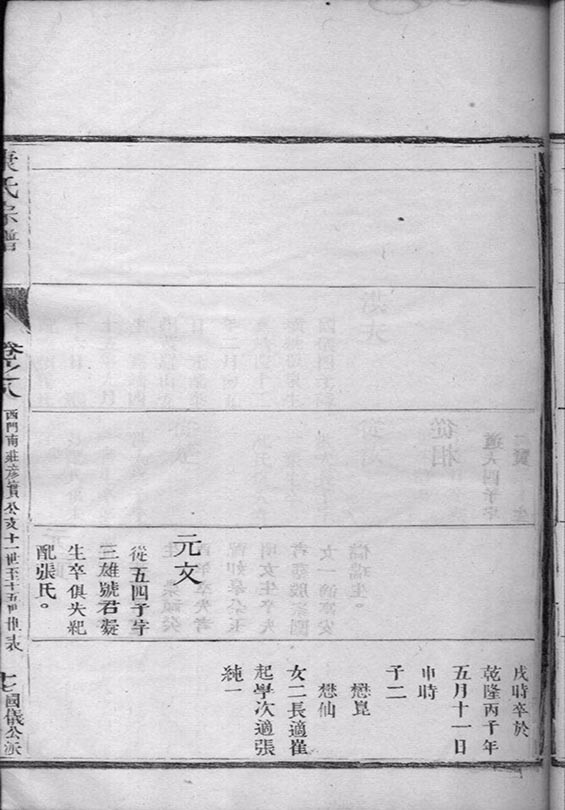 戌時卒於
乾隆丙午年
五月十一日
申時
子二
懋崑
懋仙
女二長適崔
起學次適張
純一
元文
從五四子字
三雄號君凝
生卒俱失紀
配張氏。
氏宗譜
卷之八
西門南莊彥實公支十一世至十五世世表
七
國儀公派